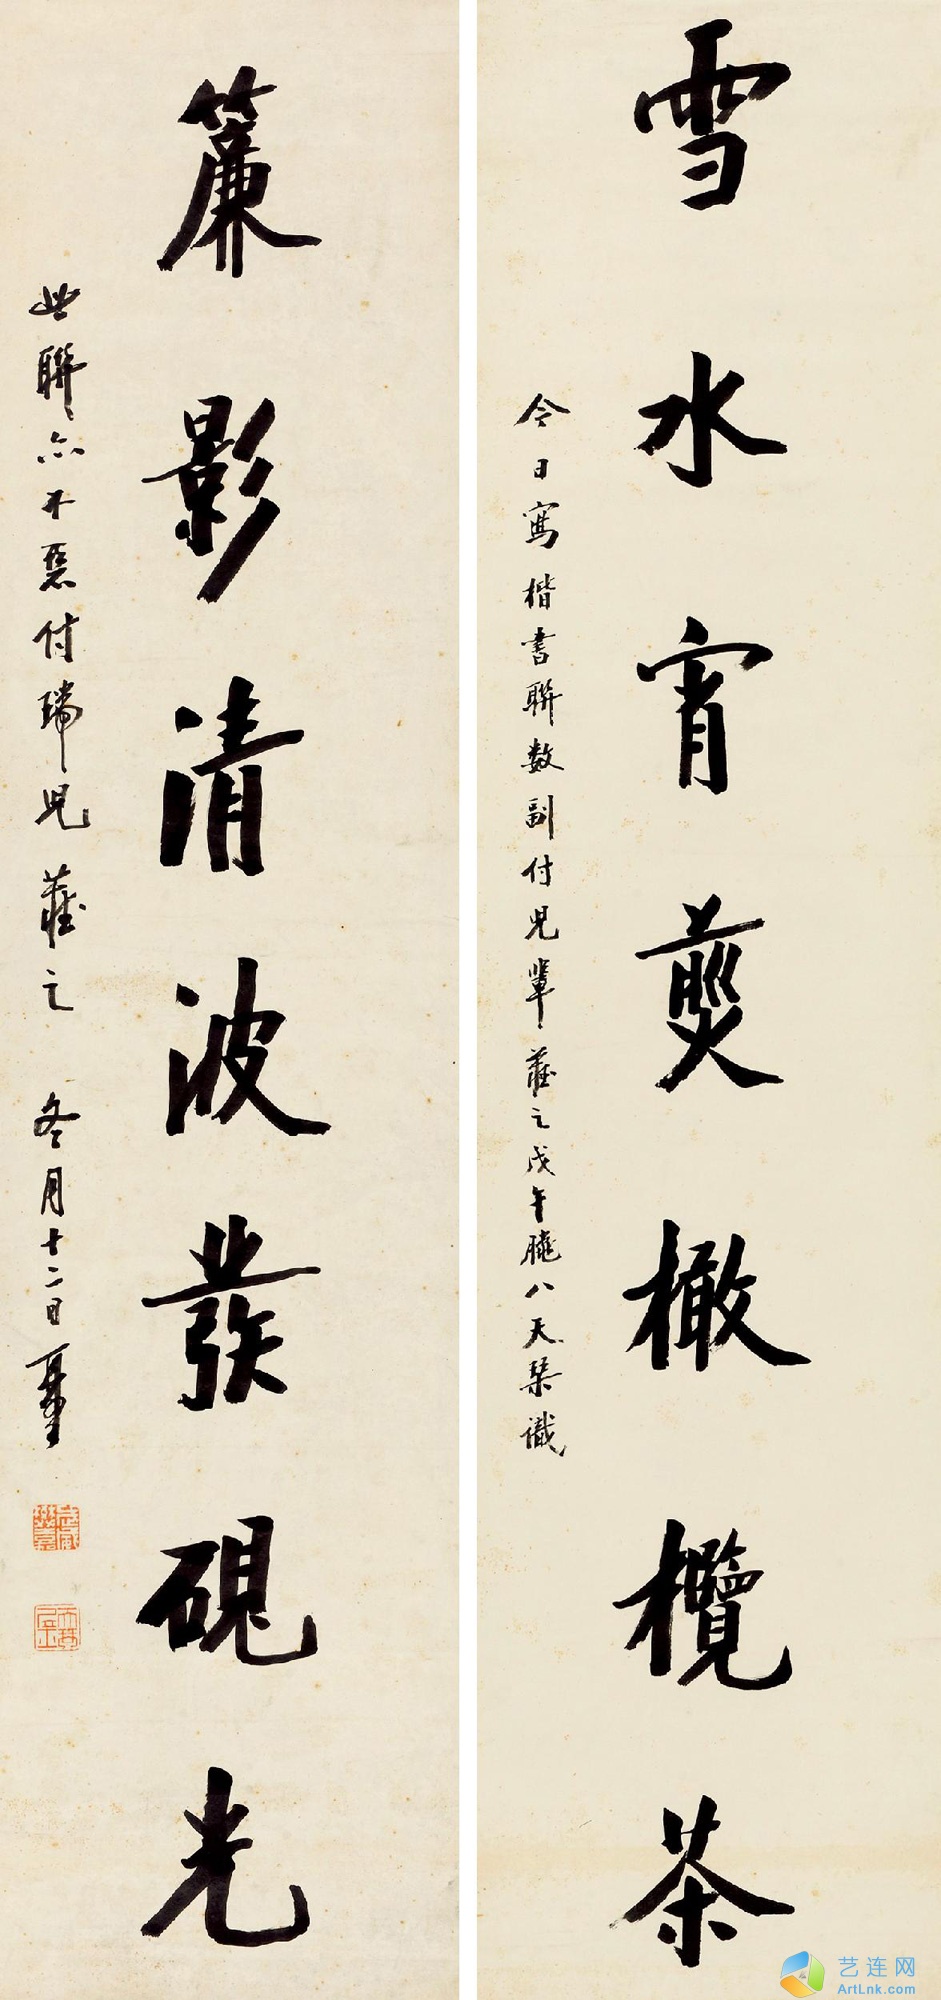 雪水宵煎橄欖茶
今日寫楷書聯數副付兒輩藏之戊午臘八天琴識
簾影清波發硯光
此聯亦不惡付瑞兒藏之 冬月十二日
艺连网
ArtLnk.com